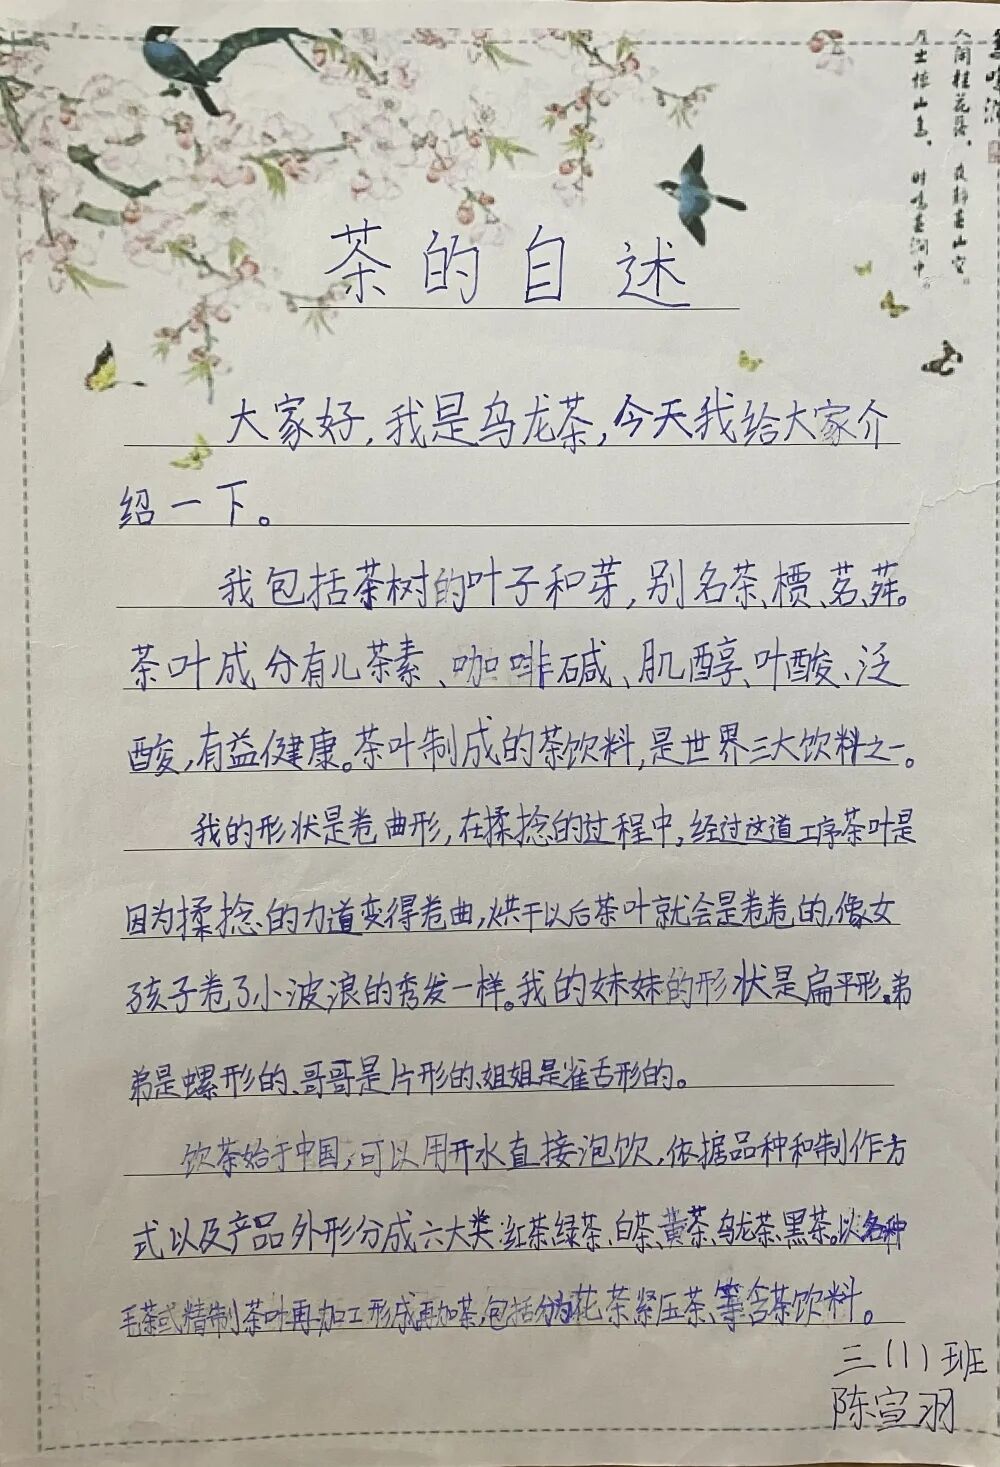 人闲桂花落，夜静春山空。
月出惊山鸟，时鸣春涧中。
茶的自述
大家好，我是乌龙茶，今天我给大家介
绍一下。
我包括茶树的叶子和芽，别名茶、槚、茗、荈。
茶叶成分有儿茶素、咖啡碱、肌醇、叶酸、泛
酸，有益健康。茶叶制成的茶饮料，是世界三大饮料之一。
我的形状是卷曲形，在揉捻的过程中，经过这道工序茶叶是
因为揉捻的力道变得卷曲，烘干以后茶叶就会是卷卷的，像女
孩子卷了小波浪的秀发一样。我的妹妹的形状是扁平形、弟
弟是螺形的、哥哥是片形的、姐姐是雀舌形的。
饮茶始于中国，可以用开水直接泡饮，依据品种和制作方
式以及产品外形分成六大类：红茶、绿茶、白茶、黄茶、乌龙茶、黑茶。以各种
毛茶或精制茶叶再加工形成再加茶，包括分为花茶、紧压茶、等含茶饮料。
三（1）班
陈宣羽